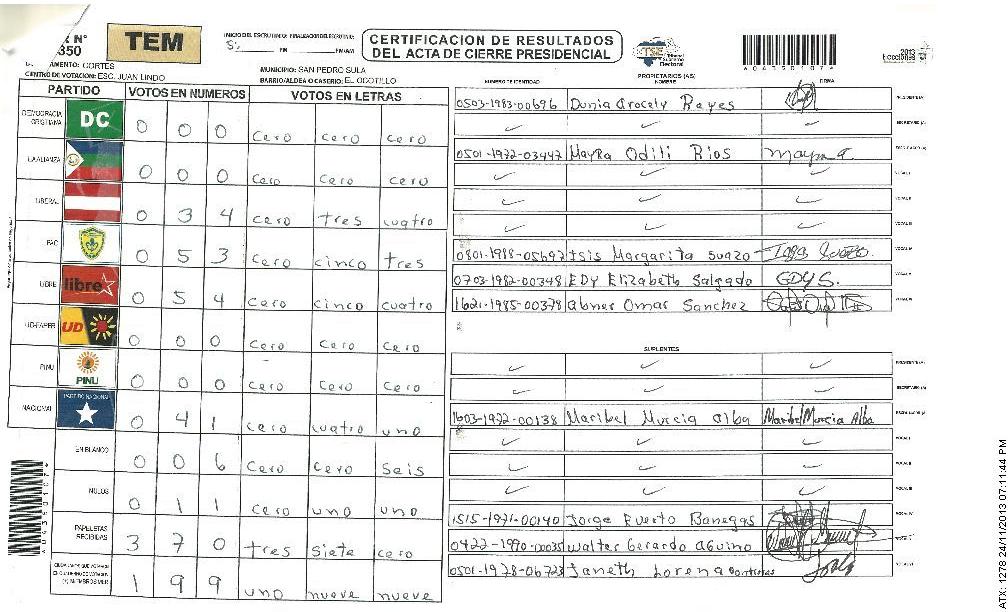 N°
350
TEM
INICIO DEL ESCRUTINIO: FINALIZACION DEL ESCRUTINIO:
CERTIFICACION DE RESULTADOS
DEL ACTA DE CIERRE PRESIDENCIAL
TSE Tribunal Supremo Electoral
2013
Elecciones
CORTES
CENTRO DE VOTACION: ESC. JUAN LINDO
MUNICIPIO: SAN PEDRO SULA
BARRIO/ALDEA O CASERIO: EL OCOTILLO
NUMERO DE IDENTIDAD PROPIETARIOS (AS) NOMBRE FIRMA
PARTIDO VOTOS EN NUMEROS VOTOS EN LETRAS
DEMOCRACIA CRISTIANA DC 0 0 0 Cero cero cero
LA ALIANZA 0 0 0 Cero Cero cero
LIBERAL 0 3 4 cero tres cuatro
PAC 0 5 3 Cero cinco tres
LIBRE libre 0 5 4 Cero cinco cuatro
UD-FAPER UD 0 0 0 Cero Cero Cero
PINU PINU 0 0 0 Cero Cero Cero
NACIONAL PARTIDO NACIONAL 0 4 1 cero cuatro uno
EN BLANCO 0 0 6 Cero Cero Seis
NULOS 0 1 1 Cero uno uno
PAPELETAS RECIBIDAS 3 7 0 tres Siete cero
1 9 9 uno nueve nueve
0503-1983-00696 Dunia Arocely Reyes
0501-1972-03447 Mayra Odili Rios Mayra
0801-1988-05697 Isis Margarita Suazo
0703-1982-00348 EDY Elizabeth Salgado EDY S.
1621-1985-00378 Abner Omar Sanchez
SUPLENTES
1603-1972-00138 Maribel Murcia Alba Maribel Murcia Alba
1515-1971-00140 Jorge Puerto Banegas
0422-1990-00035 Walter Gerardo Aguino
0501-1978-06723 Janeth Lorena Contreras
ATX: 1278 24/11/2013 07:11:44 PM